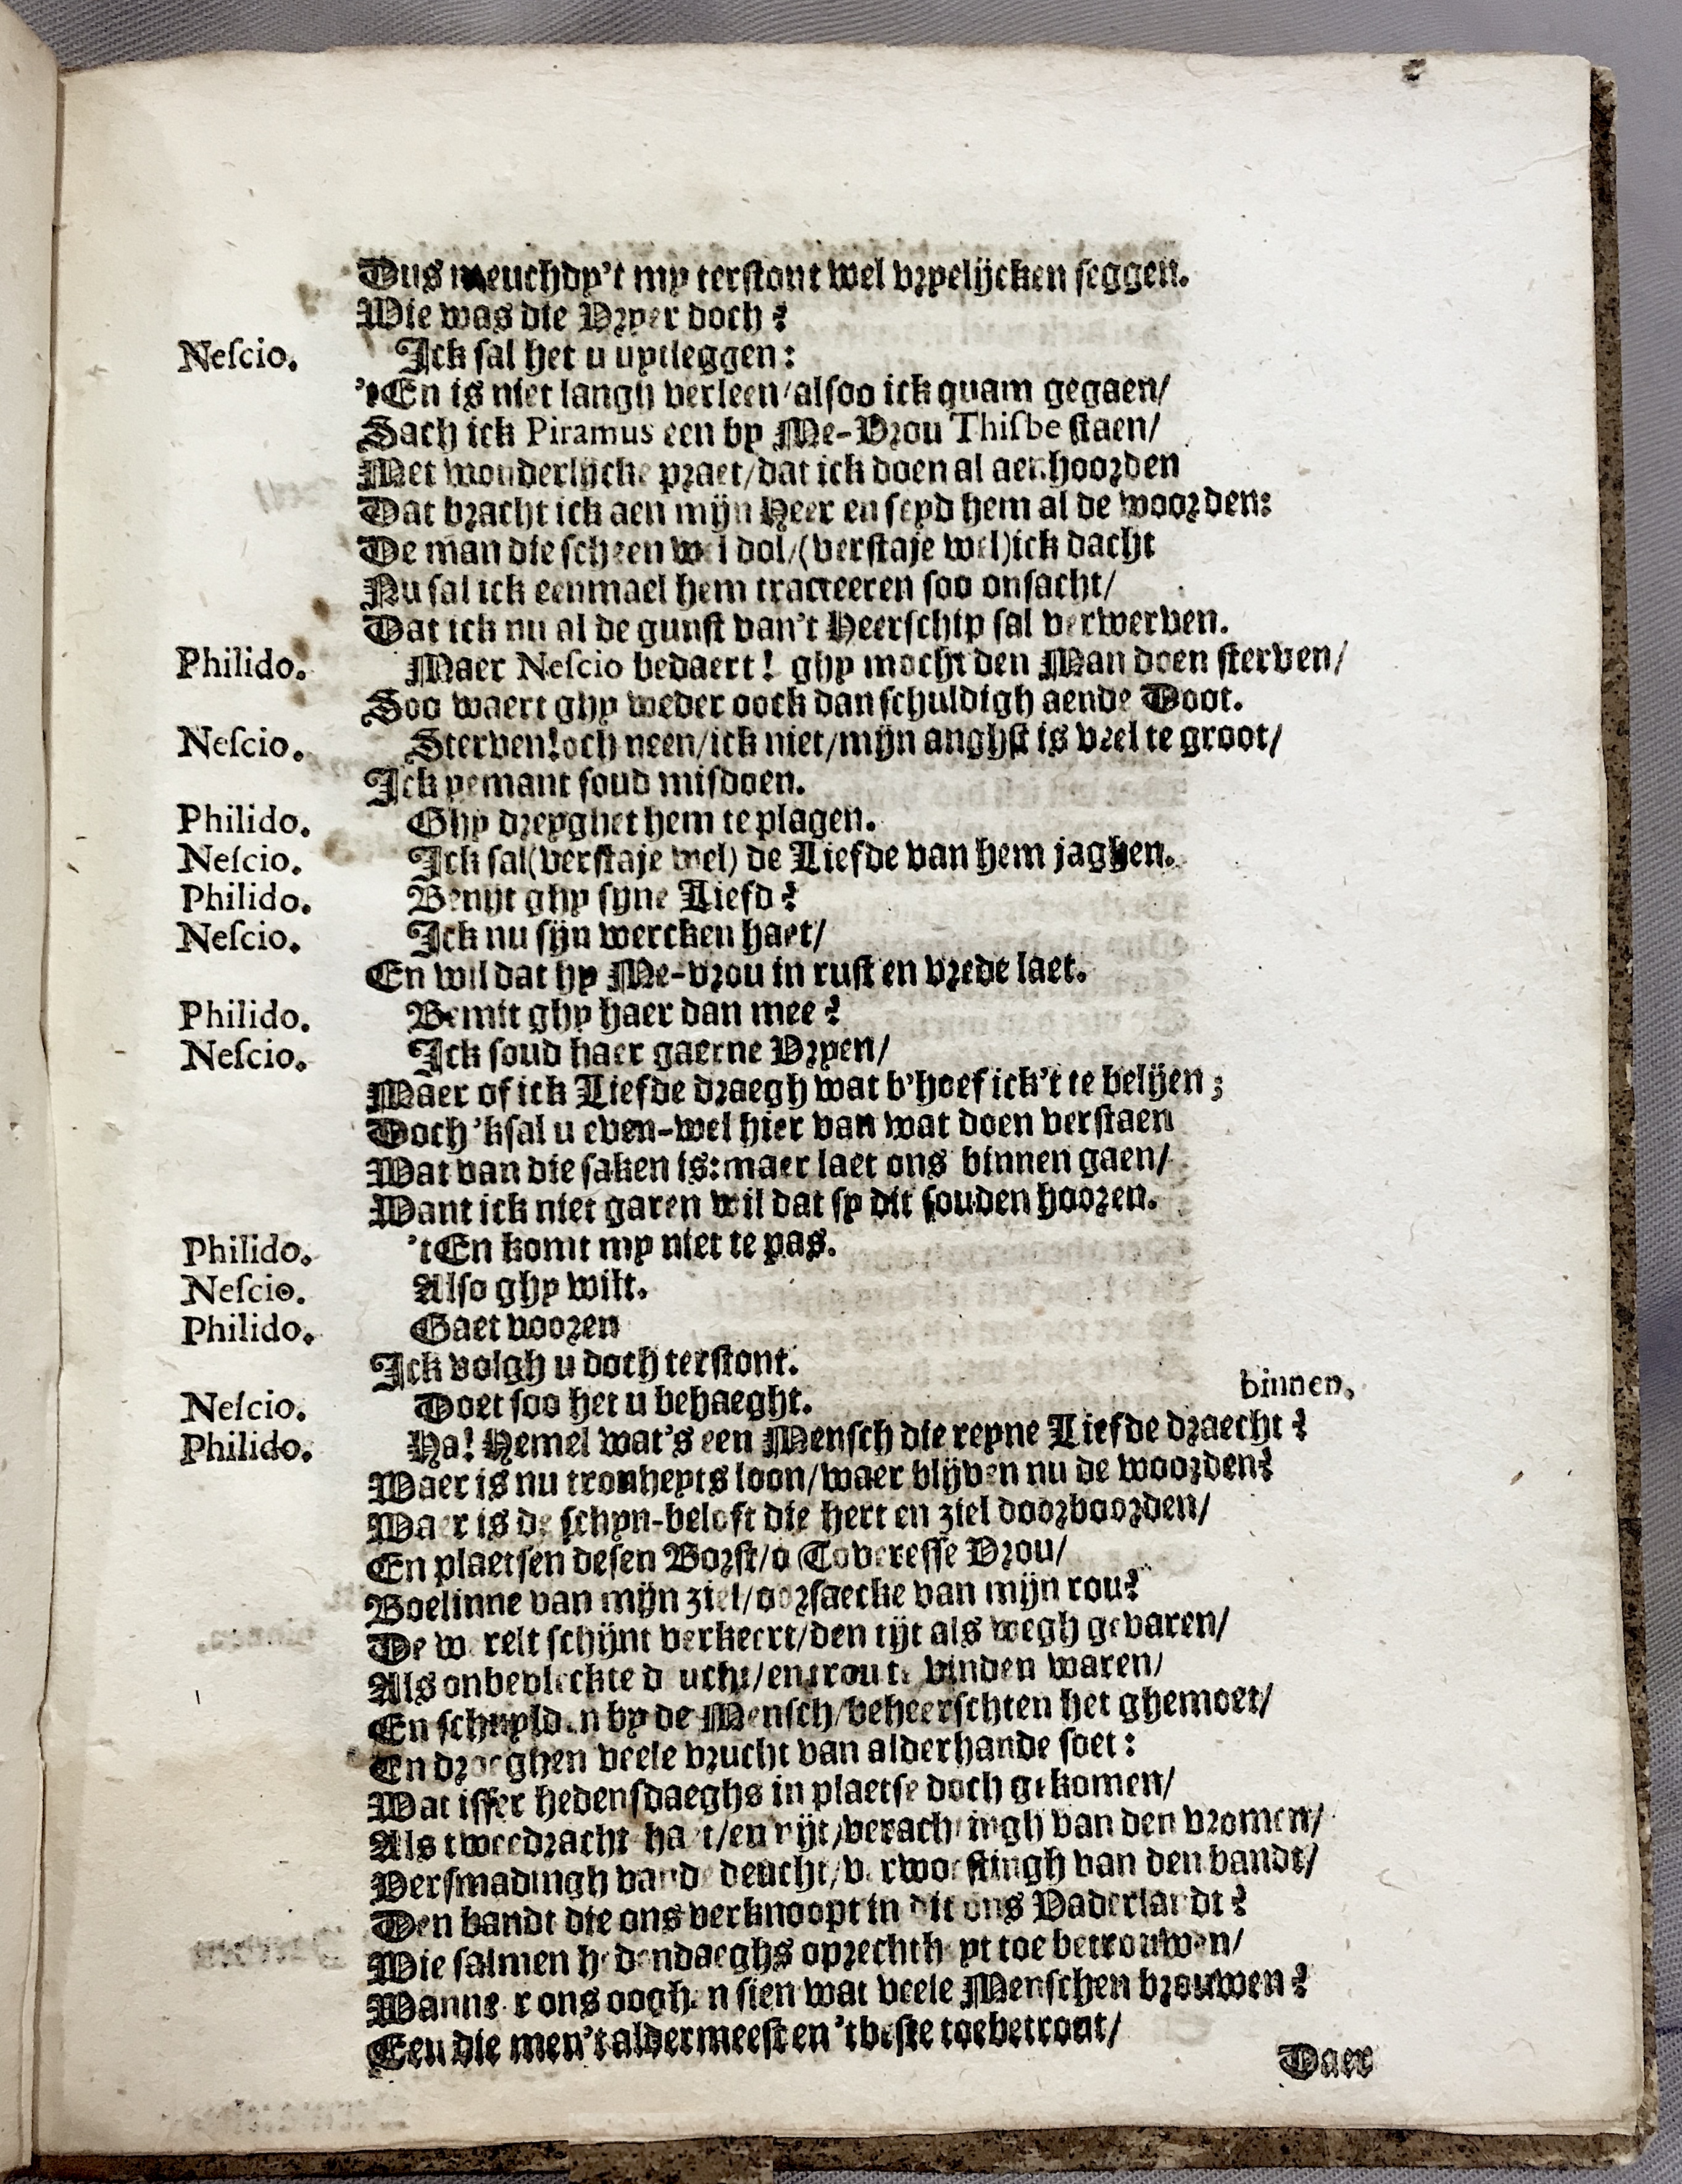 Dus meuchdy't my terstont wel vryelijcken seggen.
Wie was die Vryer doch?
Nescio. Ick sal het u uytleggen:
't En is niet langh verleen/alsoo ick quam gegaen/
Sach ick Piramus een by Me-Vrou Thisbe staen/
Met wonderlijcke praet/dat ick doen al aenhoorden
Dat bracht ick aen mijn Heer en seyd hem al de woorden:
De man die scheen wel dol/(verstaje wel)ick dacht
Nu sal ick eenmael hem tracteeren soo onsacht/
Dat ick nu al de gunst van't Heerschip sal verwerven.
Philido. Maer Nescio bedaert! ghy mocht den Man doen sterven/
Soo waert ghy weder oock dan schuldigh aende Doot.
Nescio. Sterven!och neen/ick niet/mijn anghst is veel te groot/
Ick yemant soud misdoen.
Philido. Ghy dreyghet hem te plagen.
Nescio. Ick sal(verstaje wel) de Liefde van hem jaghen.
Philido. Benijt ghy syne Liefd?
Nescio. Ick nu sijn wercken haet/
En wil dat hy Me-vrou in rust en vrede laet.
Philido. Bemint ghy haer dan mee?
Nescio. Ick soud haer gaerne Vryen/
Maer of ick Liefde draegh wat b'hoef ick't te belijen;
Doch 'ksal u even-wel hier van wat doen verstaen
Wat van die saken is:maer laet ons binnen gaen/
Want ick niet garen wil dat sy dit souden hooren.
Philido. 't En komt my niet te pas.
Nescio. Also ghy wilt.
Philido. Gaet vooren
Ick volgh u doch terstont.
binnen.
Nescio. Doet soo het u behaeght.
Philido. Ha! Hemel wat's een Mensch die reyne Liefde draecht?
Waer is nu trouheyts loon/waer blijven nu de woorden?
Waer is de schyn-beloft die hert en ziel doorboorden/
En plaetsen desen Borst/o Toveresse Vrou/
Boelinne van mijn ziel/oorsaecke van mijn rou?
De werelt schijnt verkeert/den tijt als wegh gevaren/
Als onbevleckte deucht/en trou te vinden waren/
En schuylden by de Mensch/beheerschten het ghemoet/
En droeghen veele vrucht van alderhande soet:
Wat isser hedensdaeghs in plaetse doch gekomen/
Als tweedracht haet/en nijt/verachtingh van den vromen/
Versmadingh vande deucht/verwoestingh van den bandt/
Den bandt die ons verknoopt in dit ons Vaderlandt?
Wie salmen hedendaeghs oprechtheyt toe betrouwen/
Wanneer ons ooghen sien wat veele Menschen brouwen?
Een die men't aldermeest en 't beste toebetrout/
Daer